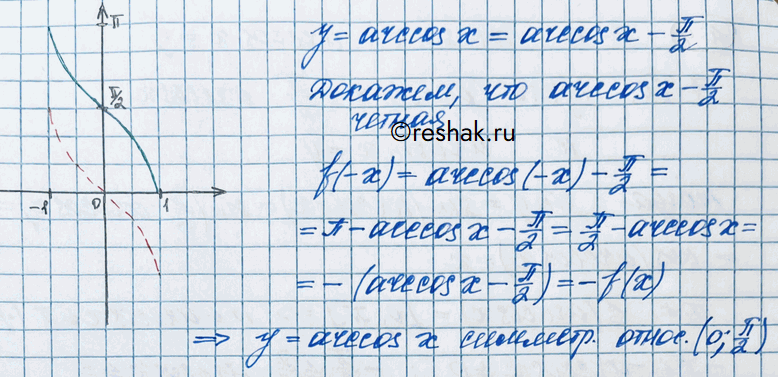 π
π/2
-1 0 1
y = arccos x = arccos x - π/2
Докажем, что arccos x - π/2
четная
©reshak.ru
f(-x) = arccos(-x) - π/2 =
= π - arccos x - π/2 = π/2 - arccos x =
= - (arccos x - π/2) = -f(x)
⇒ y = arccos x симметр. относ. (0; π/2)